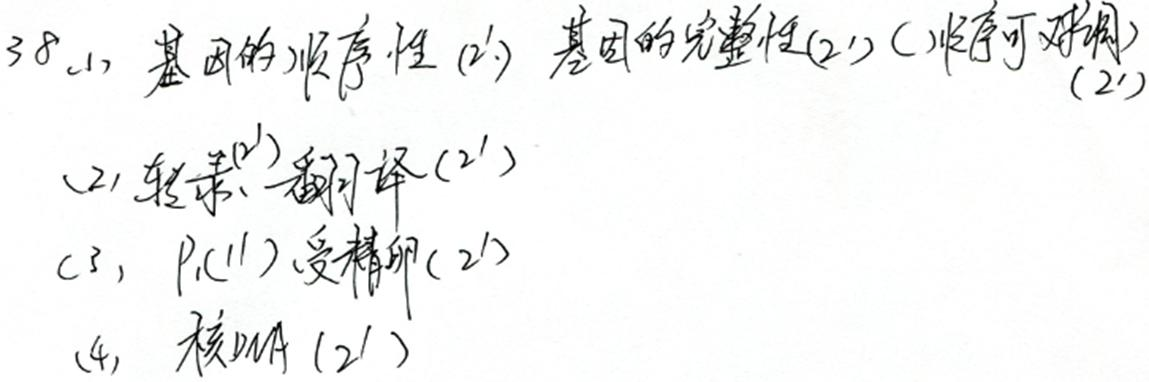 38.(1) 基因的顺序性(2') 基因的完整性(2')(顺序可对调)
(2')
(2) 转录(2')、翻译(2')
(3) P1(1') 受精卵(2')
(4) 核DNA(2')